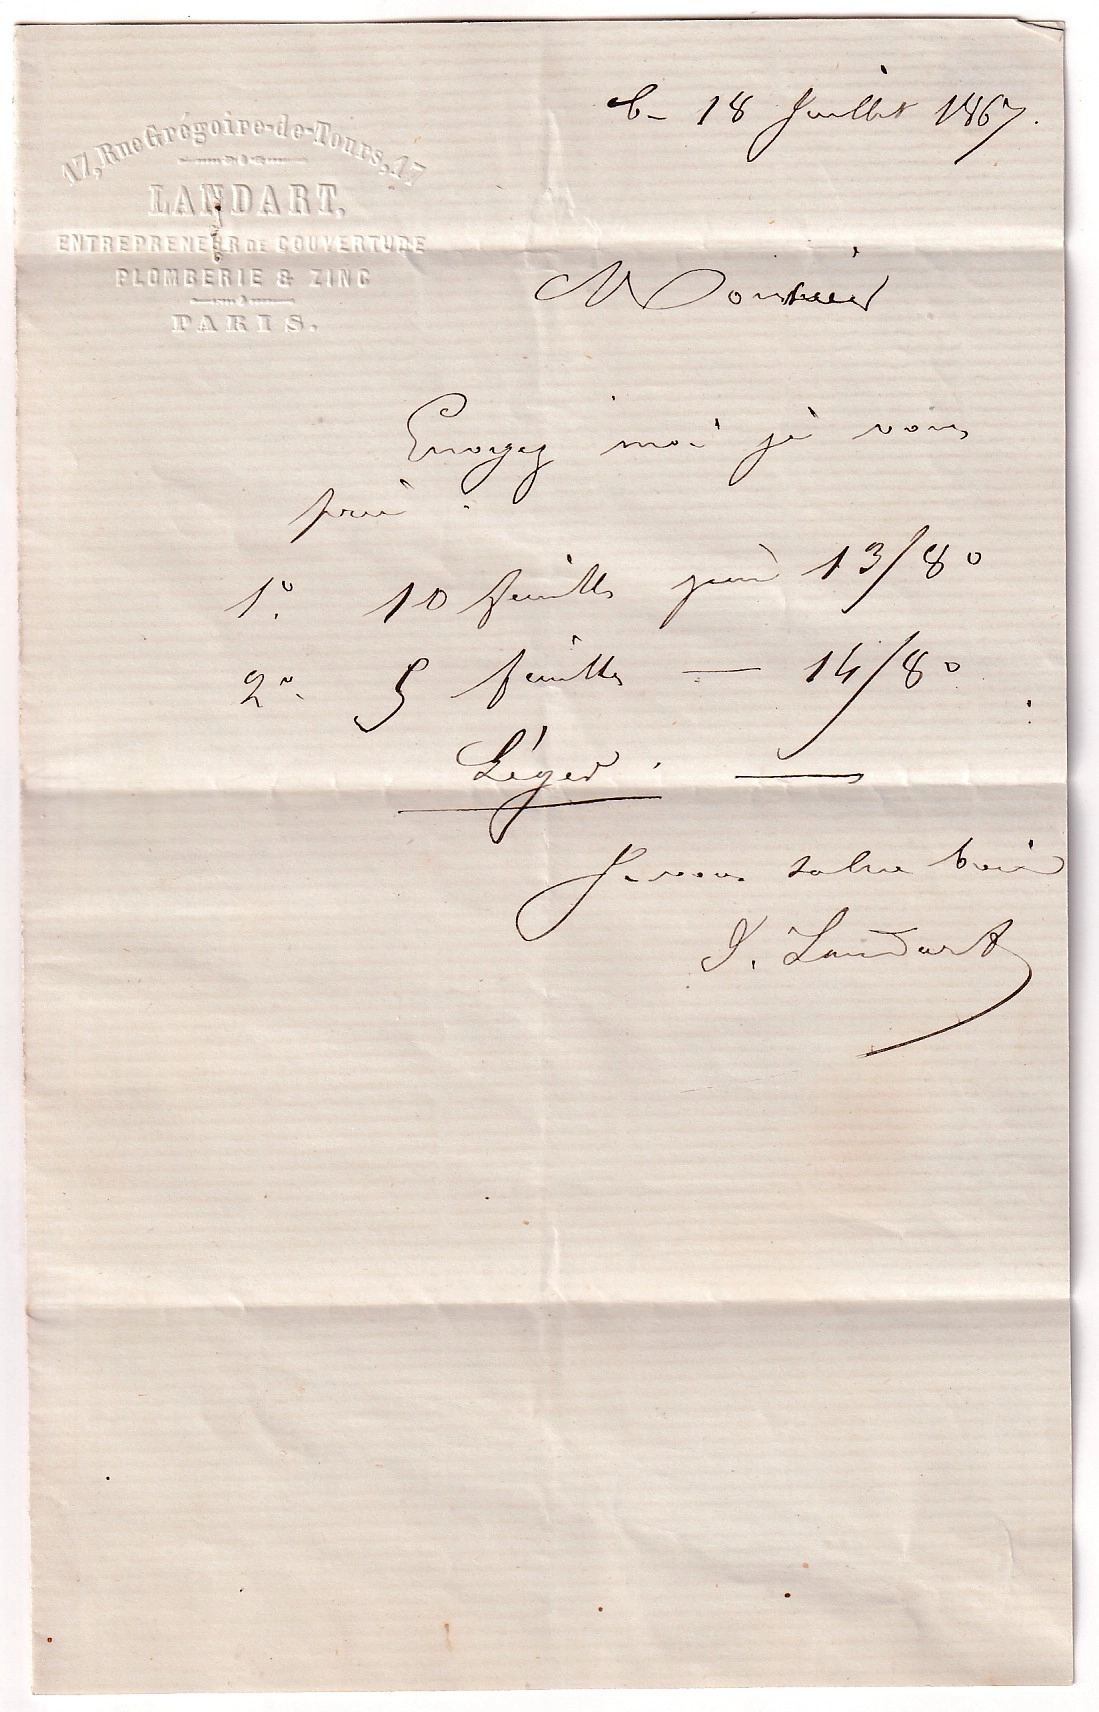 17, Rue Grégoire-de-Tours, 17
LANDART,
ENTREPRENEUR DE COUVERTURE
PLOMBERIE & ZINC
PARIS.
18 Juillet 1867.
Monsieur
Envoyez moi je vous
prie
1° 10 feuilles 13/80
2° 5 feuilles — 14/80
Léger. —
Je vous salue bien
J. Landart